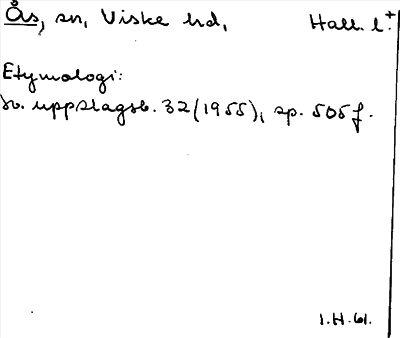 Ås, sn, Viske hd, Hall. l.+
Etymologi:
Sv. uppslagsb. 32 (1955), sp. 505 f.
I.H.61.